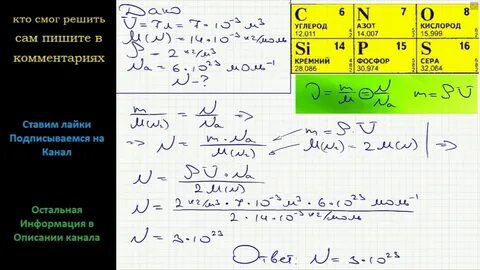 кто смог решить
сам пишите в
комментариях
Ставим лайки
Подписываемся на
Канал
Остальная
Информация в
Описании канала
Дано
V = 7 л = 7·10⁻³ м³
M(N) = 14·10⁻³ кг/моль
ρ = 2 кг/м³
Na = 6·10²³ моль⁻¹
N - ?
C 6 N 7 O 8
УГЛЕРОД АЗОТ КИСЛОРОД
12,011 14,007 15,999
Si 14 P 15 S 16
КРЕМНИЙ ФОСФОР СЕРА
28,086 30,974 32,064
ν = m/M = N/Na m = ρV
m/M(N₂) = N/Na =>
=> N = m·Na/M(N₂) m = ρV
M(N₂) = 2M(N) =>
N = ρV·Na/2M(N)
N = 2 кг/м³ · 7·10⁻³ м³ · 6·10²³ моль⁻¹/2·14·10⁻³ кг/моль
N = 3·10²³
Ответ: N = 3·10²³